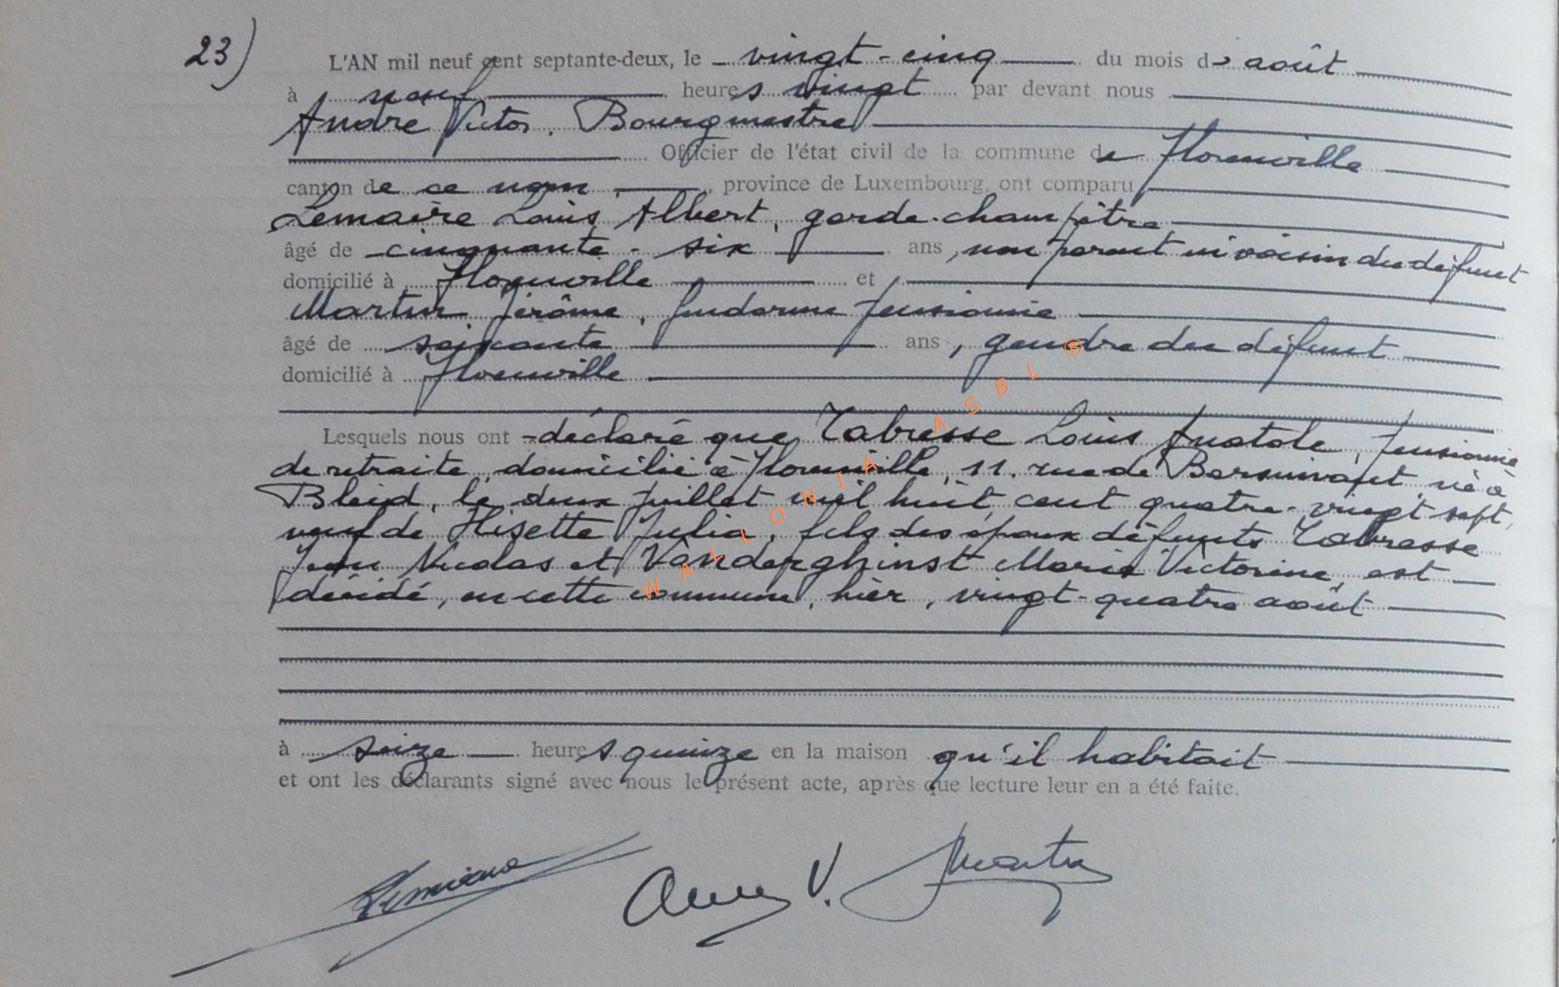 23)
L'AN mil neuf cent septante-deux, le vingt-cinq du mois d' août
à neuf heures vingt par devant nous
André Victor, Bourgmestre
Officier de l'état civil de la commune de Florenville
canton de ce nom, province de Luxembourg, ont comparu
Lemaire Louis Albert, garde-champêtre
âgé de cinquante-six ans, non parent ni voisin du défunt
domicilié à Florenville et
Martin Jérôme, gendarme pensionné
âgé de soixante ans, gendre du défunt
domicilié à Florenville
Lesquels nous ont déclaré que Tabresse Louis Anatole, pensionné
de retraite, domicilié à Florenville, 11, rue de né à
Bleid, le deux juillet mil huit cent quatre-vingt sept,
veuf de Hisette Julia, fils des époux défunts Tabresse
Jean Nicolas et Vanderghinst Marie Victorine, est
décédé, en cette commune, hier, vingt-quatre août
à seize heures quinze en la maison qu'il habitait
et ont les déclarants signé avec nous le présent acte, après que lecture leur en a été faite.
WALLONIA ASBL ®